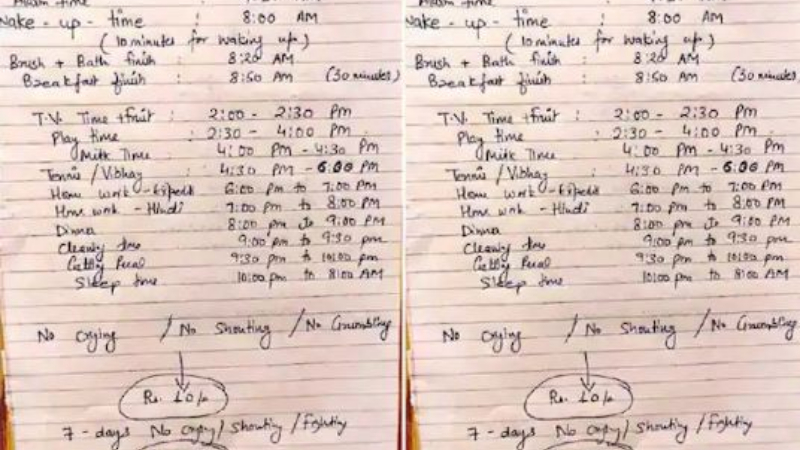 Wake - up - time : 8:00 AM
(10 minutes for waking up)
Brush + Bath finish : 8:20 AM
Breakfast finish : 8:50 AM (30 minutes)
T.V. Time + fruit : 2:00 - 2:30 PM
Play time : 2:30 - 4:00 PM
Milk Time : 4:00 PM - 4:30 PM
Tennis / : 4:30 PM - 6:00 PM
Home work - 6:00 pm to 7:00 PM
Home work - Hindi 7:00 pm to 8:00 PM
Dinner 8:00 pm to 9:00 PM
Cleaning time 9:00 pm to 9:30 pm
9:30 pm to 10:00 pm
Sleep time 10:00 pm to 8:00 AM
No crying / No Shouting / No Grumbling
Rs. 10/-
7 - days No crying / shouting / fighting
Wake - up - time : 8:00 AM
(10 minutes for waking up)
Brush + Bath finish : 8:20 AM
Breakfast finish : 8:50 AM (30 minutes)
T.V. Time + fruit : 2:00 - 2:30 PM
Play time : 2:30 - 4:00 PM
Milk Time : 4:00 PM - 4:30 PM
Tennis / : 4:30 PM - 6:00 PM
Home work - 6:00 pm to 7:00 PM
Home work - Hindi 7:00 pm to 8:00 PM
Dinner 8:00 pm to 9:00 PM
Cleaning time 9:00 pm to 9:30 pm
9:30 pm to 10:00 pm
Sleep time 10:00 pm to 8:00 AM
No crying / No Shouting / No Grumbling
Rs. 10/-
7 - days No crying / shouting / fighting